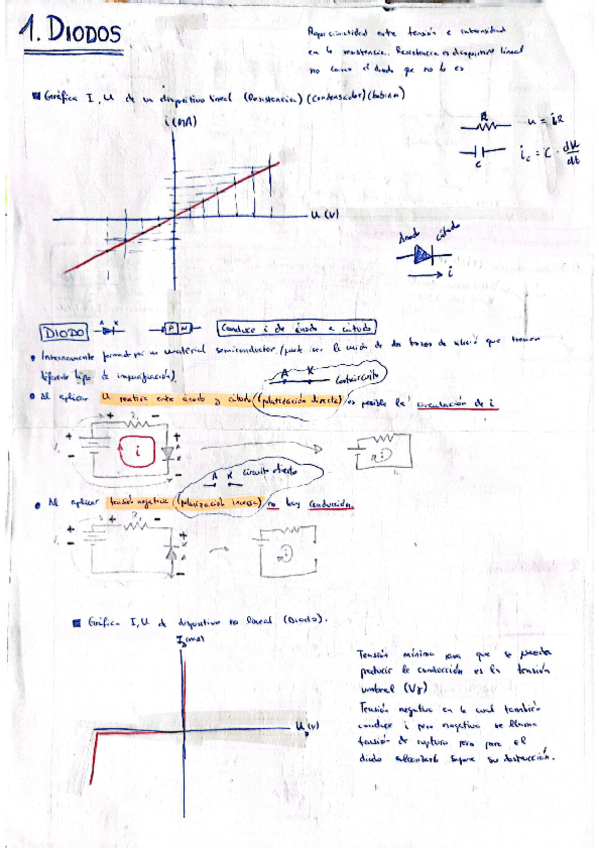 1. DIODOS
Proporcionalidad entre tensión e intensidad
en la resistencia. Resistencia es dispositivo lineal
no como el diodo que no lo es
Gráfica I, U de un dispositivo lineal (Resistencia) (Condensador) (bobina)
i (mA)
U (V)
R
u = iR
C
i_c = C · du/dt
Ánodo cátodo
i
DIODO
A K
P N
Conduce i de ánodo a cátodo
Internamente formado por un material semiconductor (puede ser la unión de dos trozos de silicio que tienen
diferente tipo de impurificación).
A K
Cortocircuito
Al aplicar U positiva entre ánodo y cátodo (polarización directa) es posible la circulación de i
+ R -
+ -
i
A K circuito abierto
Al aplicar tensión negativa (polarización inversa) no hay conducción
+ -
Gráfica I, U de dispositivo no lineal (Diodo).
I_D (mA)
U (V)
Tensión mínima para que se pueda
producir la conducción es la tensión
umbral (Vγ)
Tensión negativa en la cual también
conduce i pero negativa se llama
tensión de ruptura pero para el
diodo alcanzarla supone su destrucción.